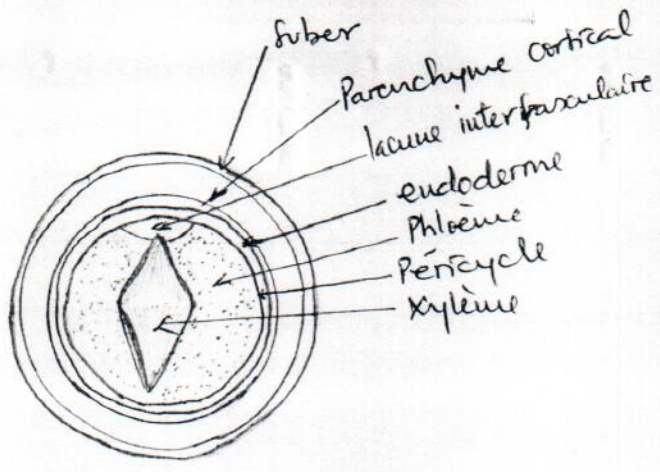 suber
Parenchyme cortical
lacune interfasculaire
endoderme
Phloème
Péricycle
xylème